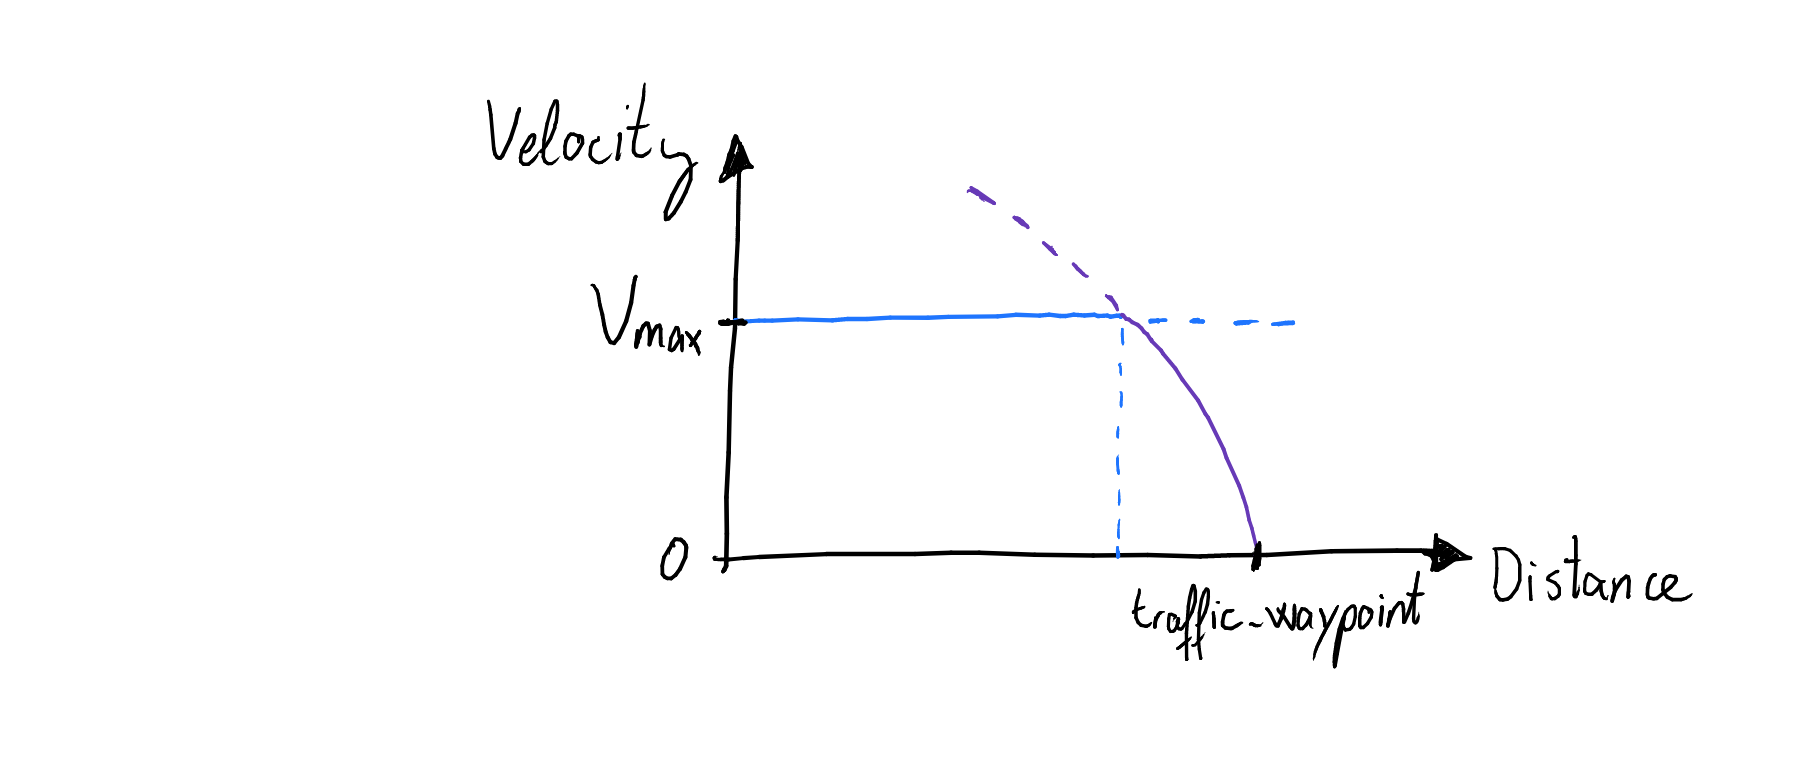 Velocity
Vmax
0
traffic-waypoint
Distance